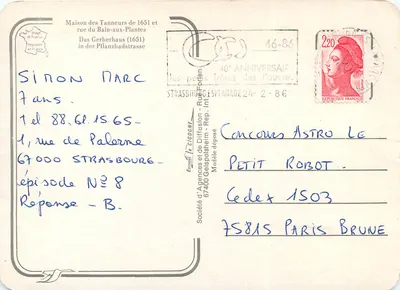 Maison des Tanneurs de 1651 et
rue du Bain-aux-Plantes
Das Gerberhaus (1651)
in der Pflanzbadstrasse
16-86
40e ANNIVERSAIRE
STRASBOURG
26-2-86
2,20
RÉPUBLIQUE FRANÇAISE
SIMON MARC
7 ans.
Tel 88.61.15 65-
1, rue de Palerme
67000 STRASBOURG-
épisode No 8
Réponse - B.
Société d'Agences et de Diffusion - Rue Forlen
67400 Geispolsheim - Rep. Int.
Modèle déposé
CONCOURS ASTRO LE
PETIT ROBOT.
Cedex 1503
75815 PARIS BRUNE